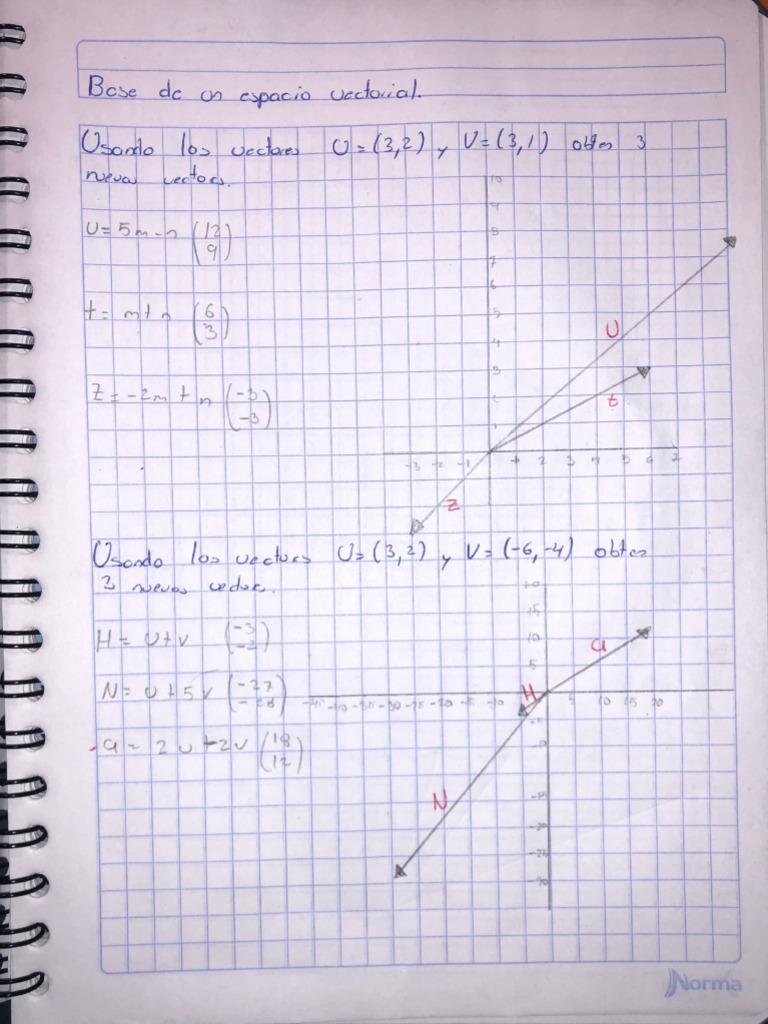 Base de un espacio vectorial.
Usando los vectores U=(3,2) y V=(3,1) obten 3
nuevos vectores.
U=5m-n (12 9)
t= m+n (6 3)
Z=-2m+n (-3 -3)
10
9
8
7
6
5
4
3
2
1
U
t
Z
-3 -2 -1 1 2 3 4 5 6 7
Usando los vectores U=(3,2) y V=(-6,-4) obten
3 nuevos
H= U+V (-3 -2)
N= U+5V (-27
a= 2U-2V (18 12)
15
10
5
a
H
N
-45 -40 -35 -30 -25 -20 -15 -10 5 10 15 20
-30
Norma